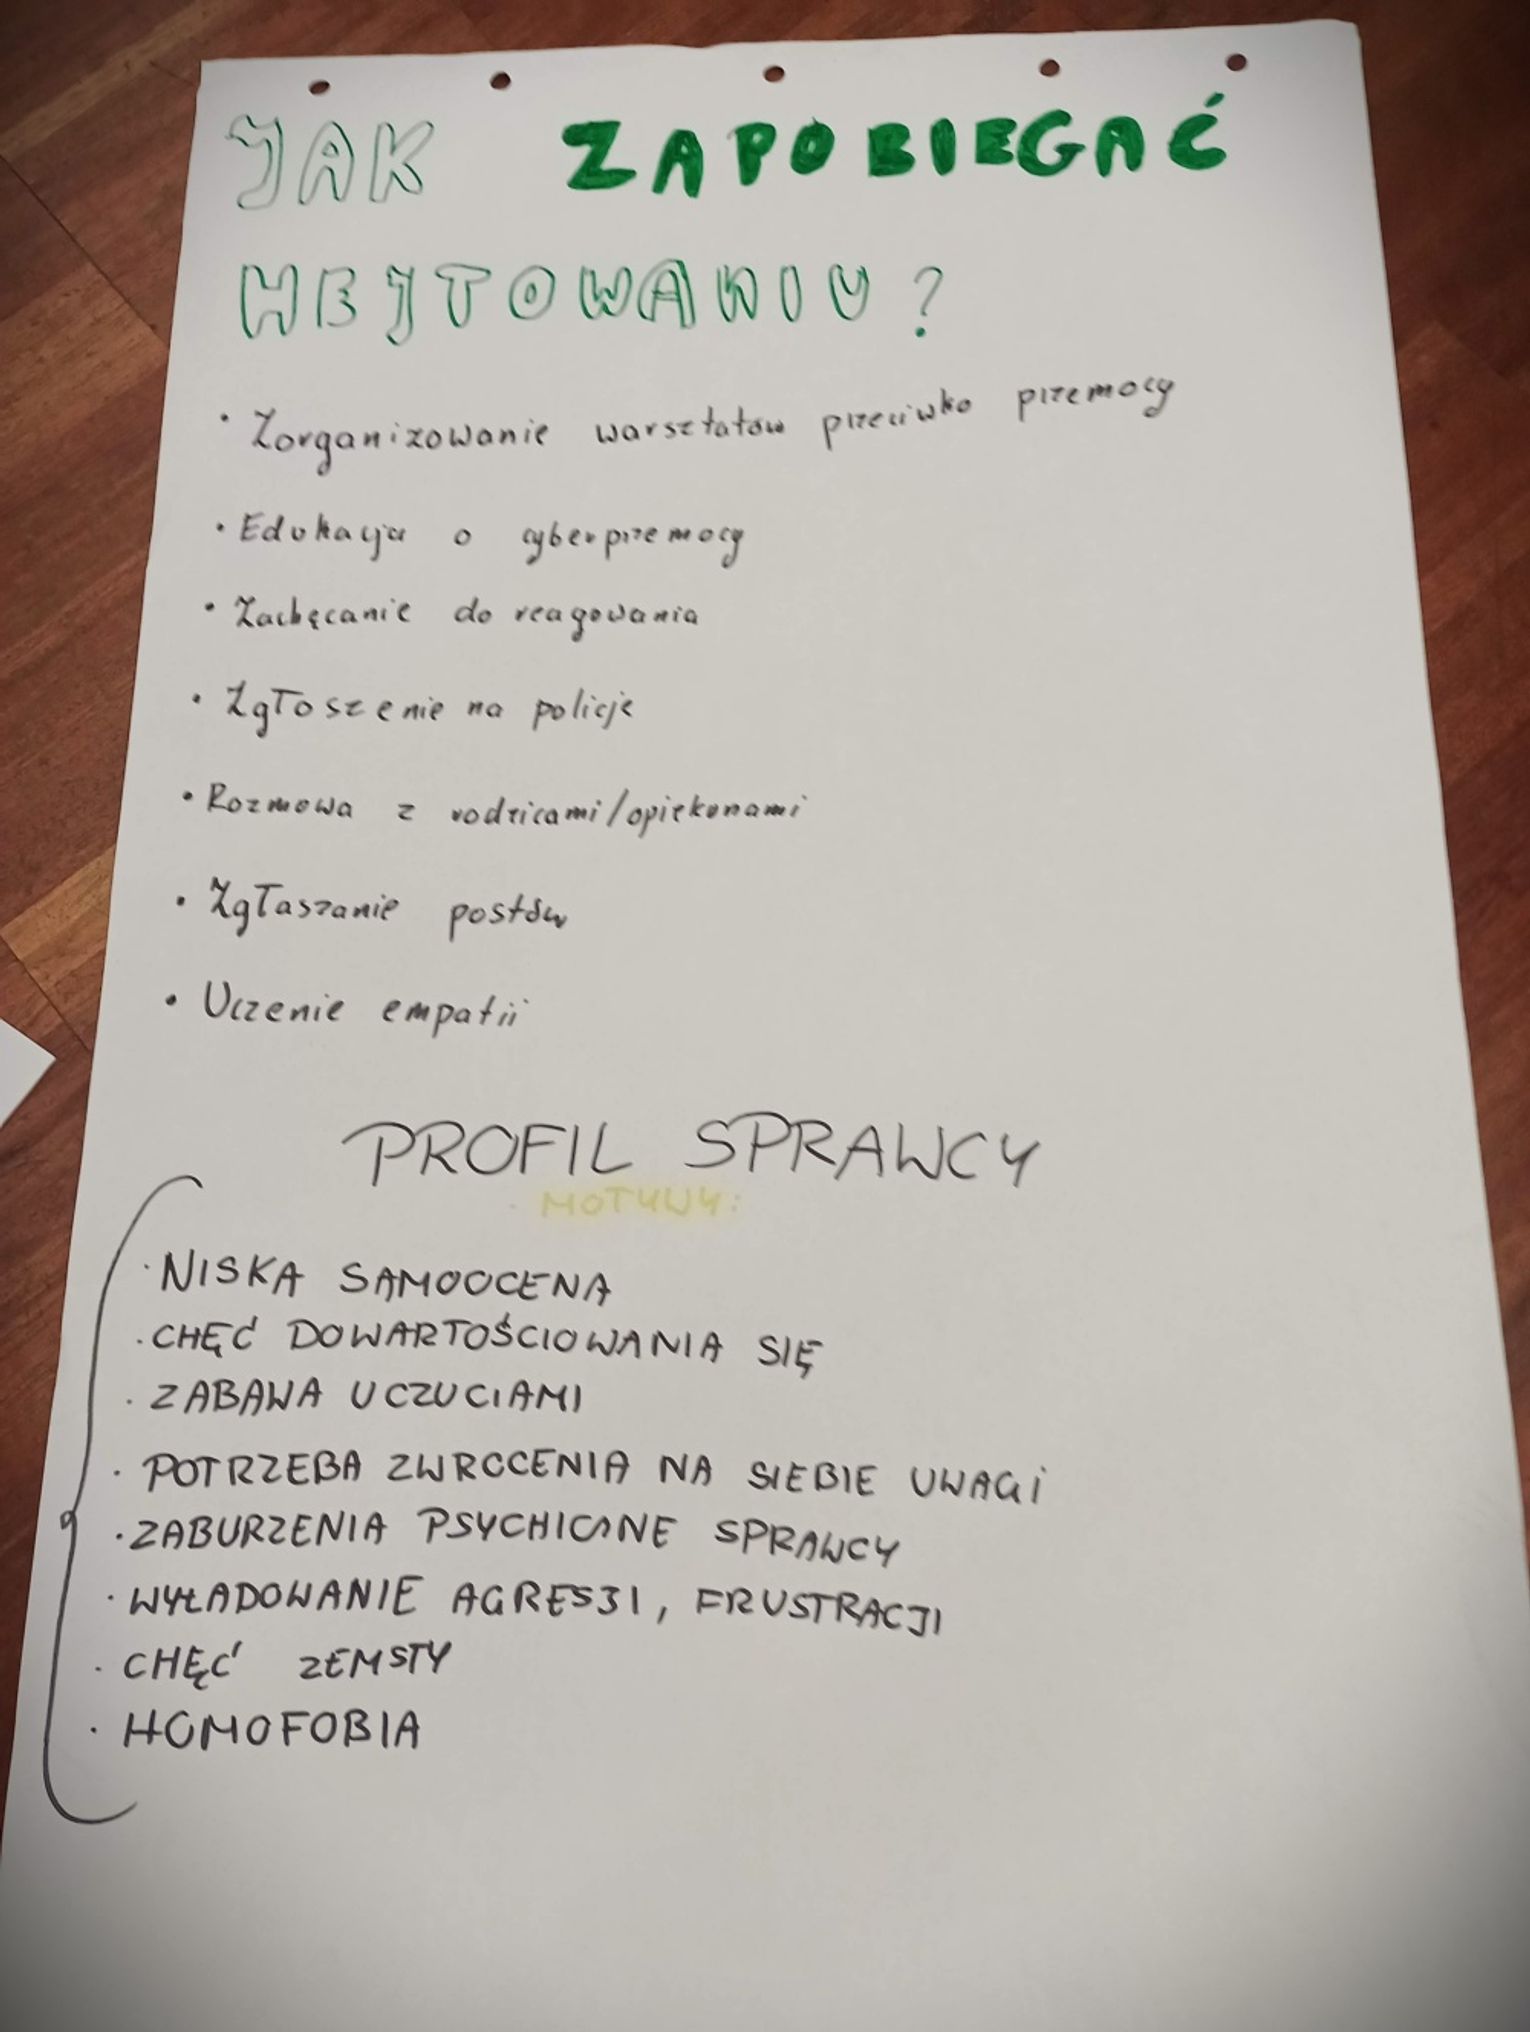 JAK ZAPOBIEGAĆ
HEJTOWANIU?
• Zorganizowanie warsztatów przeciwko przemocy
• Edukacja o cyberprzemocy
• Zachęcanie do reagowania
• Zgłoszenie na policje
• Rozmowa z rodzicami/opiekunami
• Zgłaszanie postów
• Uczenie empatii
PROFIL SPRAWCY
MOTYWY:
· NISKA SAMOOCENA
· CHĘĆ DOWARTOŚCIOWANIA SIĘ
· ZABAWA UCZUCIAMI
· POTRZEBA ZWROCENIA NA SIEBIE UWAGI
· ZABURZENIA PSYCHICZNE SPRAWCY
· WYŁADOWANIE AGRESJI, FRUSTRACJI
· CHĘĆ ZEMSTY
· HOMOFOBIA